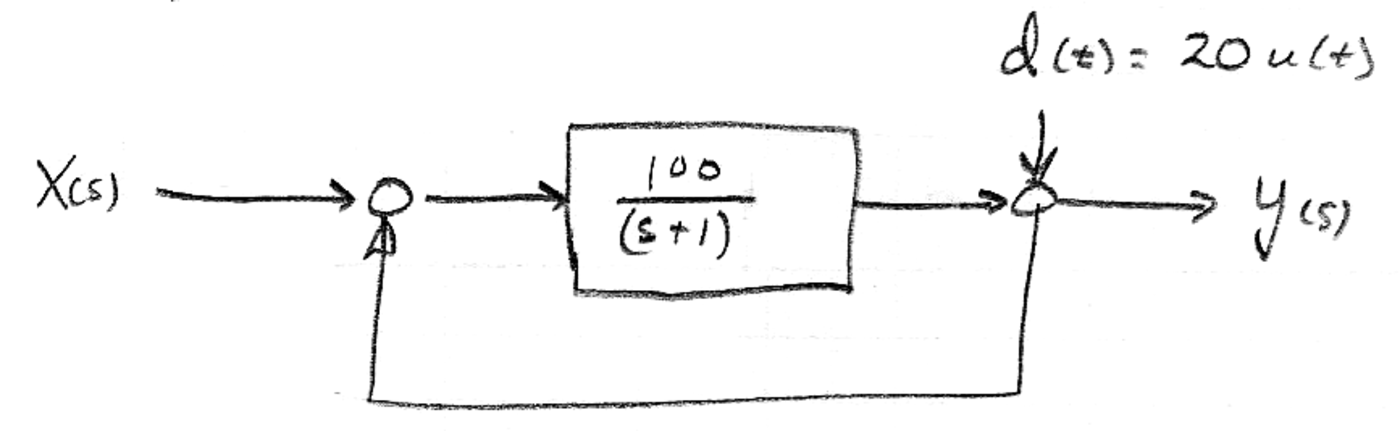 d(t) = 20 u(t)
X(s)
100
(s+1)
y(s)